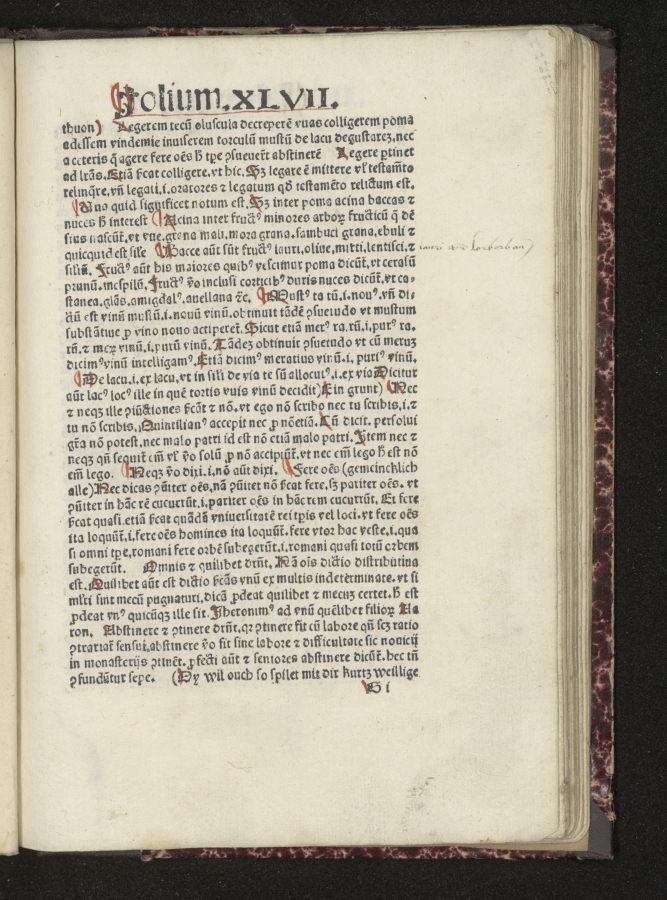 Folium.XLVII.
thuon) Legerem tecū oluscula decreperē vuas colligerem poma
adessem vindemie inuiserem torculū mustū de lacu degustarēz, nec
a ceteris ꝗ agere fere oēs ħ tꝑe ꝯsueuert̄ abstinerē Legere ꝑtinet
ad lrās. Etiā ſcat colligere. vt hic. Sꝫ legare ē mittere vl' testamēto
relinq̄re. vn̄ legati .i. oratores ⁊ legatum qd̄ testamēto relictum est.
Uua quid significet notum est. Sꝫ inter poma acina baccas ⁊
nuces ħ interest Acina inter fruct᷒ minores arboꝝ fructicū q̄ dē
sius nascūt. vt vue. grana mali. mora grana. sambuci grana. ebuli ⁊
quicquid est sile Bacce aūt sūt fruct᷒ lauri. oliue. mirti. lentisci. ⁊
siliū. Fruct᷒ aūt his maiores quib᷒ vescimur poma dicūt. vt cerasū
prunū. mespilū. Fruct᷒ ꝟo inclusi corticib᷒ duris nuces dicūt. vt ca-
stanea. glās. amigdal᷒. auellana ⁊c. Must᷒ ta tū .i. nou᷒. vn̄ di-
ctū est vinū mustū .i. nouū vinū. obtinuit tādē ꝯsuetudo vt mustum
substātiue ꝓ vino nouo acciperet. Sicut etiā mer᷒ ra. rū .i. pur᷒ ra.
rū. ⁊ meꝝ vinū .i. purū vinū. Tādez obtinuir ꝯsuetudo vt cū meruꝫ
dicim᷒ vinū intelligam᷒. Etiā dicim᷒ meratius vinū .i. puri᷒ vinū.
De lacu .i. ex lacu. vt in sili de via te sū allocut᷒ .i. ex via Dicitur
aūt lac᷒ loc᷒ ille in quē tortis vuis vinū decidit) Ein grunt) Nec
⁊ neqꝫ ille ꝯiūctiones ſcāt ⁊ nō. vt ego nō scribo nec tu scribis .i. ⁊
tu nō scribis. Quintilian᷒ accepit nec ꝓ nō etiā. Cū dicit. persolui
gr̄a nō potest. nec malo patri id est nō etiā malo patri. Item nec ⁊
neqꝫ qn̄ sequit em̄ vl' ꝟo solū ꝓ nō accipiūt. vt nec em̄ lego ħ est nō
em̄ lego. Neqꝫ ꝟo dixi .i. nō aūt dixi. Fere oēs (gemeincklich
alle) Nec dicas ꝯiiter oēs. nā ꝯiiter nō ſcat fere. sꝫ pariter oēs. vt
ꝯiiter in hāc rē cucurrūt .i. pariter oēs in hāc rem cucurrūt. Et fere
ſcat quasi. etiā ſcat quādā vniuersitatē rei tꝑis vel loci. vt fere oēs
ita loquūt .i. fere oēs homines ita loquūt. fere vtor hac veste .i. qua
si omni tꝑe. romani fere orbē subegerūt .i. romani quasi totū orbem
subegerūt. Omnis ⁊ quilibet drn̄t. Nā oīs dictio distributiua
est. Quilibet aūt est dictio ſcās vnū ex multis indeterminate. vt si
ml'ti sint mecū pugnaturi. dicā ꝓdeat quilibet ⁊ mecuꝫ certet. ħ est
ꝓdeat vn᷒ quicūqꝫ ille sit. Iheronim᷒ ad vnū quēlibet filioꝝ Aa
ron. Abstinere ⁊ ꝯtinere drn̄t. qꝛ ꝯtinere fit cū labore qn̄ scꝫ ratio
ꝯtrariat̄ sensui. abstinere ꝟo fit sine labore ⁊ difficultate sic nouicij
in monasterijs ꝯtinēt. ꝓfecti aūt ⁊ seniores abstinere dicūt. hec tn̄
ꝯfundūtur sepe. (Dy wil ouch so spilet mit dir kurtz weillige
G i